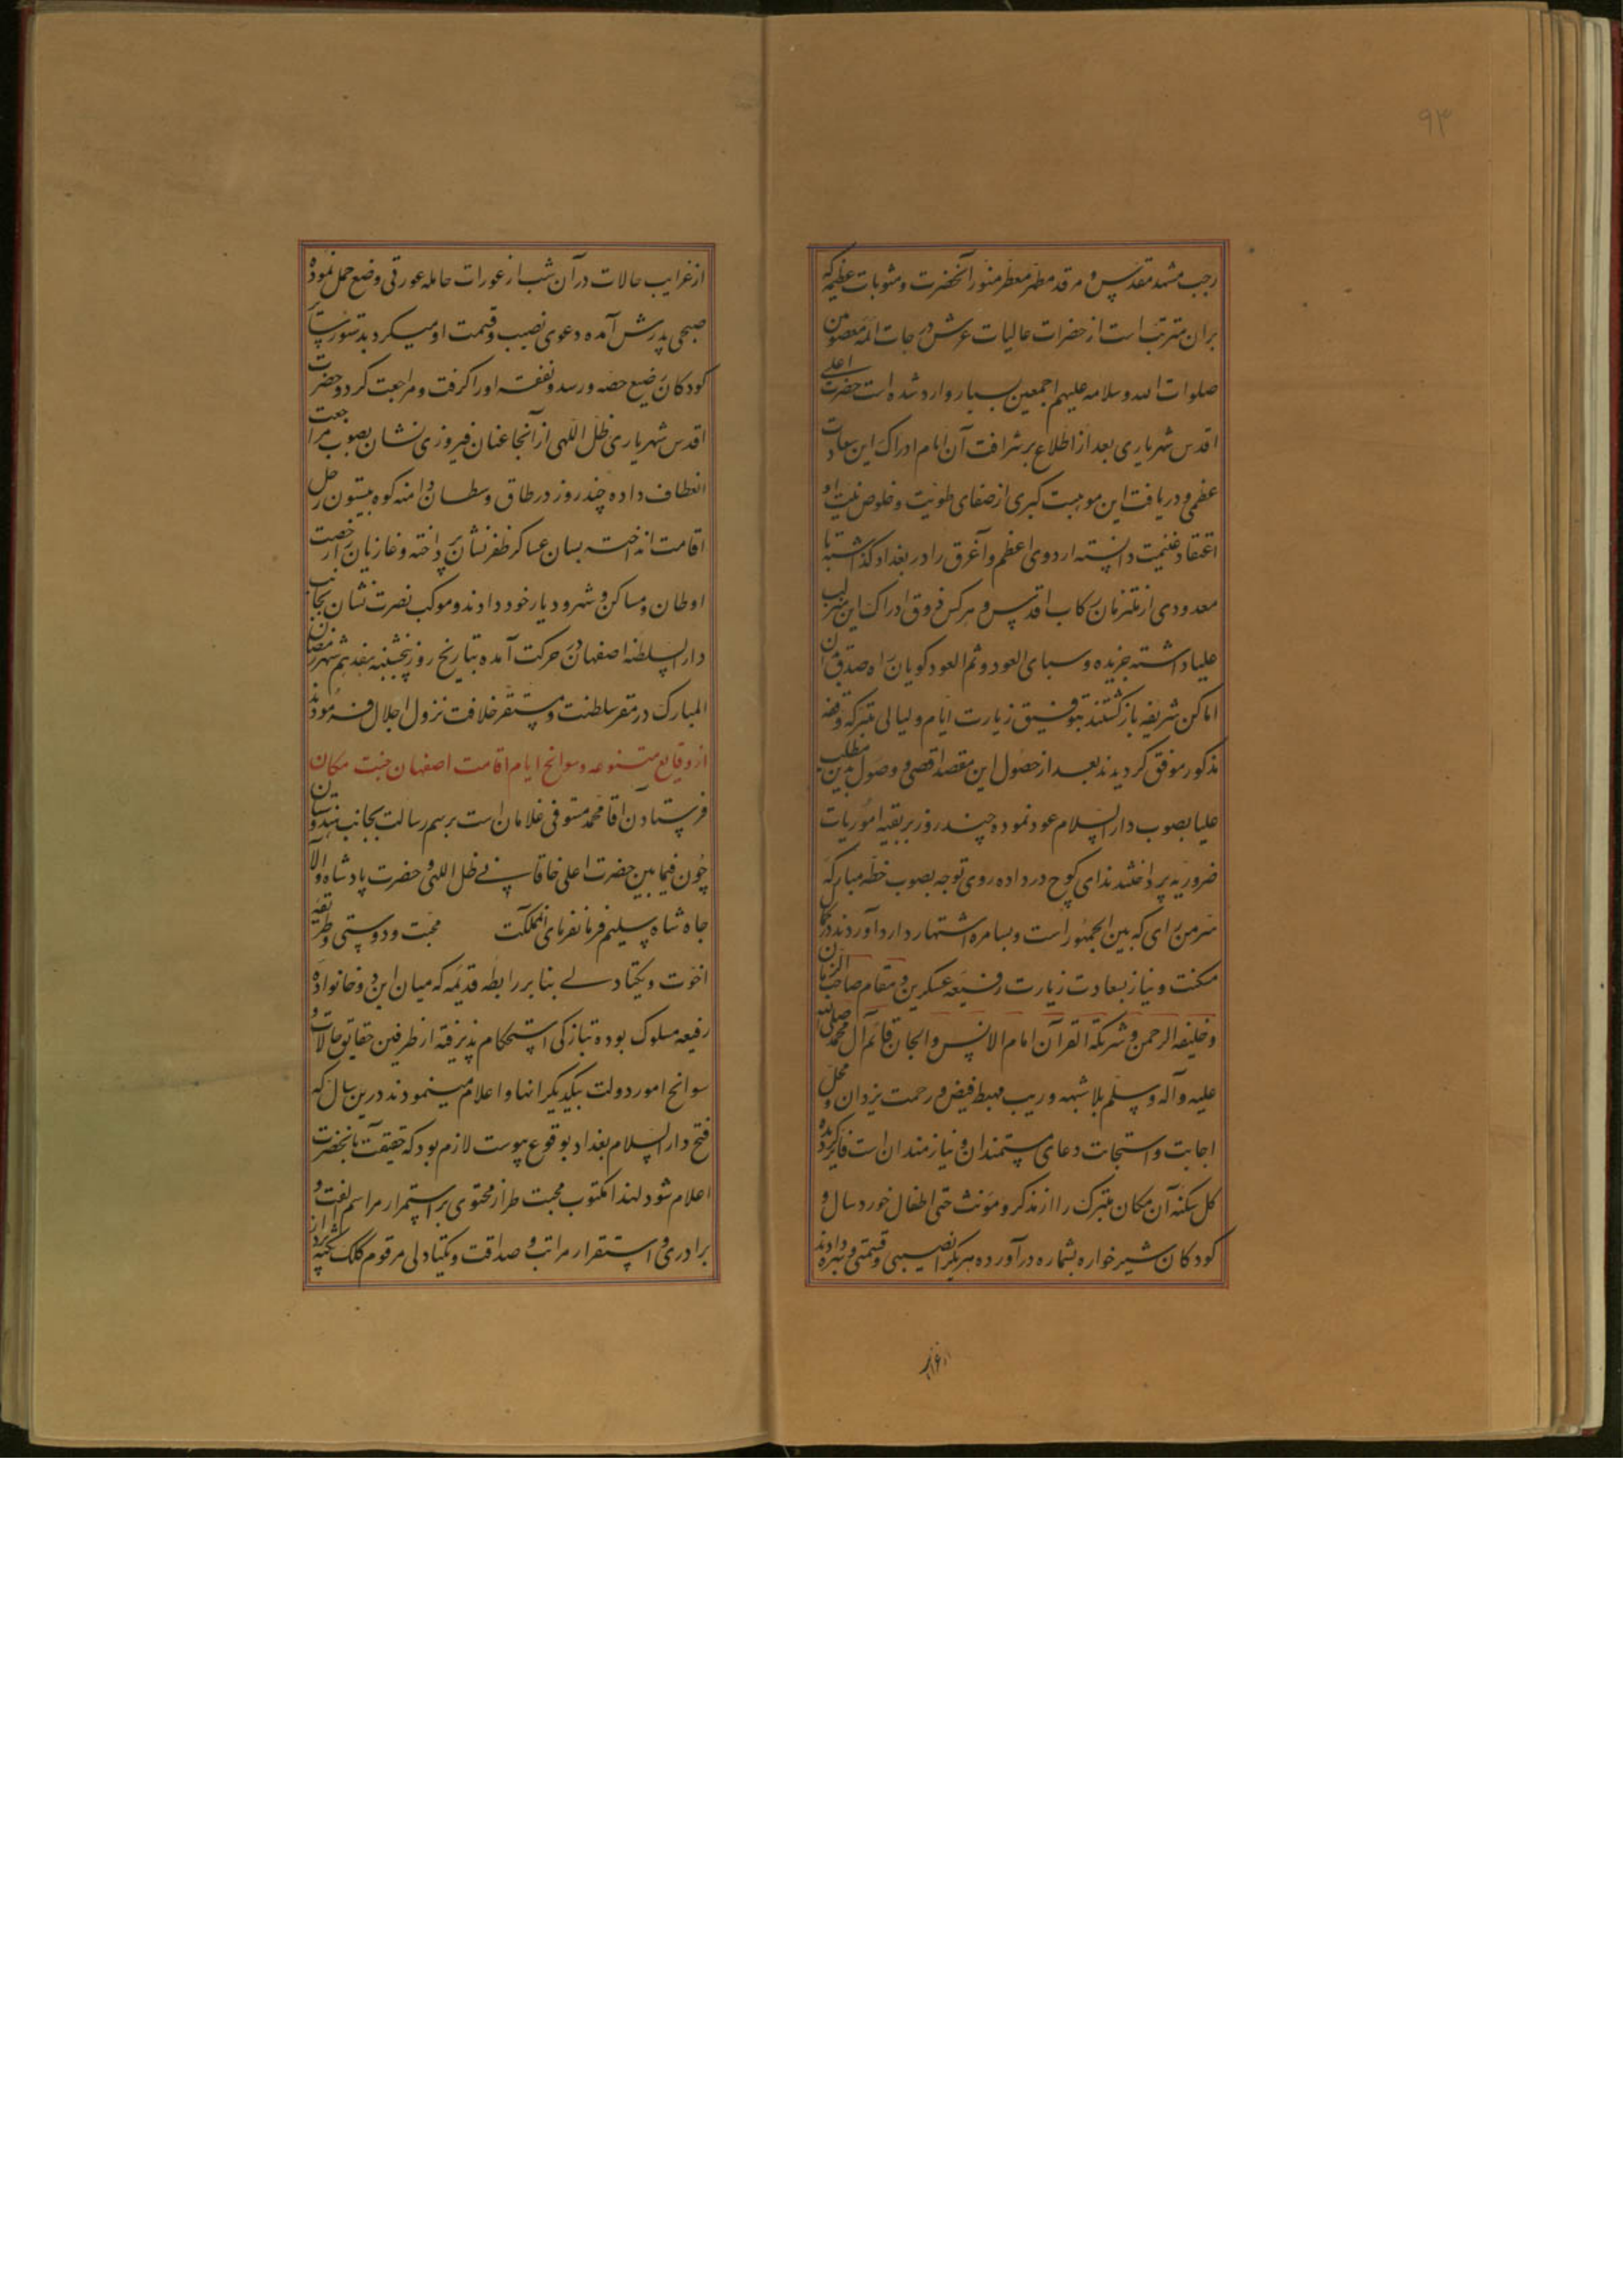 ۹۳
رجب مشهد مقدس و مرقد مطهر معطر منور آنحضرت و مثوبات عظیمه که
بران مترتب است از حضرات عالیات عرش درجات ائمه معصومین
صلوات الله و سلامه علیهم اجمعین بسیار وارد شده است حضرت اعلی
اقدس شهریاری بعد از اطلاع بر شرافت آن ایام ادراک این سعادت
عظمی و دریافت این موهبت کبری از صفای طویت و خلوص نیت و
اعتقاد غنیمت دانسته اردوی اعظم و آغرق را در بغداد گذاشته با
معدودی از ملتزمان رکاب اقدس و هر کس فروق ادراک این مطلب
علیا داشته جریده و سبای العود و ثم العود کویان راه صدق آن
اماکن شریفه بازگشتند بتوفیق زیارت ایام و لیالی متبرکه وقفه
مذکور موفق گردیدند بعد از حصول این مقصد اقصی و وصول بدین مطلب
علیا بصوب دار السلام عود نموده چند روز بر بقیه اموریات
ضروریه پرداختند ندای کوچ در داده روی توجه بصوب خطه مبارکه
سرمن رای که بین الجمهور است و بسامره اشتهار دارد آوردند در کمال
مکنت و نیاز بسعادت زیارت رفیعه عسکرین و مقام صاحب الزمان
و خلیفه الرحمن و شریکة القرآن امام الانس و الجان قائم آل محمد صلی الله
علیه و آله و سلم بلا شبهه و ریب مهبط فیض و رحمت یزدان و محل
اجابت و استجابت دعای مستمندان و نیازمندان است فایز گردیده
کل سکنه آن مکان متبرک را از مذکر و مؤنث حتی اطفال خورد سال و
کودکان شیرخواره بشماره در آورده هر یک را نصیبی و قسمتی و بهره دادند
از غرایب
از غرایب حالات در آن شب از عورات حامله عورتی وضع حمل نموده
صبحی پدرش آمده دعوی نصیب و قسمت او میکرد بدستور سایر
کودکان رضیع حصه و رسد و نفقه او را گرفت و مراجعت کرد و حضرت
اقدس شهریاری ظل اللهی از آنجا عنان فیروزی نشان بصوب مراجعت
انعطاف داده چند روز در طاق وسطان و دامنه کوه بیستون رحل
اقامت انداخته بسان عساکر ظفر نشان پرداخته و غازیان را رخصت
اوطان و مساکن و شهر و دیار خود دادند و موکب نصرت نشان بجانب
دار السلطنه اصفهان در حرکت آمده بتاریخ روز پنجشنبه هفدهم شهر رمضان
المبارک در مقر سلطنت و مستقر خلافت نزول اجلال فرمودند
از وقایع متنوعه و سوانح ایام اقامت اصفهان جنت مکان
فرستادن اقا محمد مستوفی غلامان است برسم رسالت بجانب هندوستان
چون فیما بین حضرت اعلی خاقانی ظل اللهی و حضرت پادشاه والا
جاه شاه سلیم فرمانفرمای المملکت محبت و دوستی و طریقه
اخوت و یکتادلی بنا بر رابطه قدیمه که میان این دو خانواده
رفیعه مسلوک بوده بتازگی استحکام پذیرفته از طرفین حقایق حالات و
سوانح امور دولت بیکدیگر انها و اعلام مینمودند درین سال که
فتح دار السلام بغداد بوقوع پیوست لازم بود که حقیقت بآنحضرت
اعلام شود لهذا مکتوب محبت طراز محتوی بر استمرار مراسم الفت و
برادری و استقرار مراتب صداقت و یکتادلی مرقوم کلک نکته پرداز